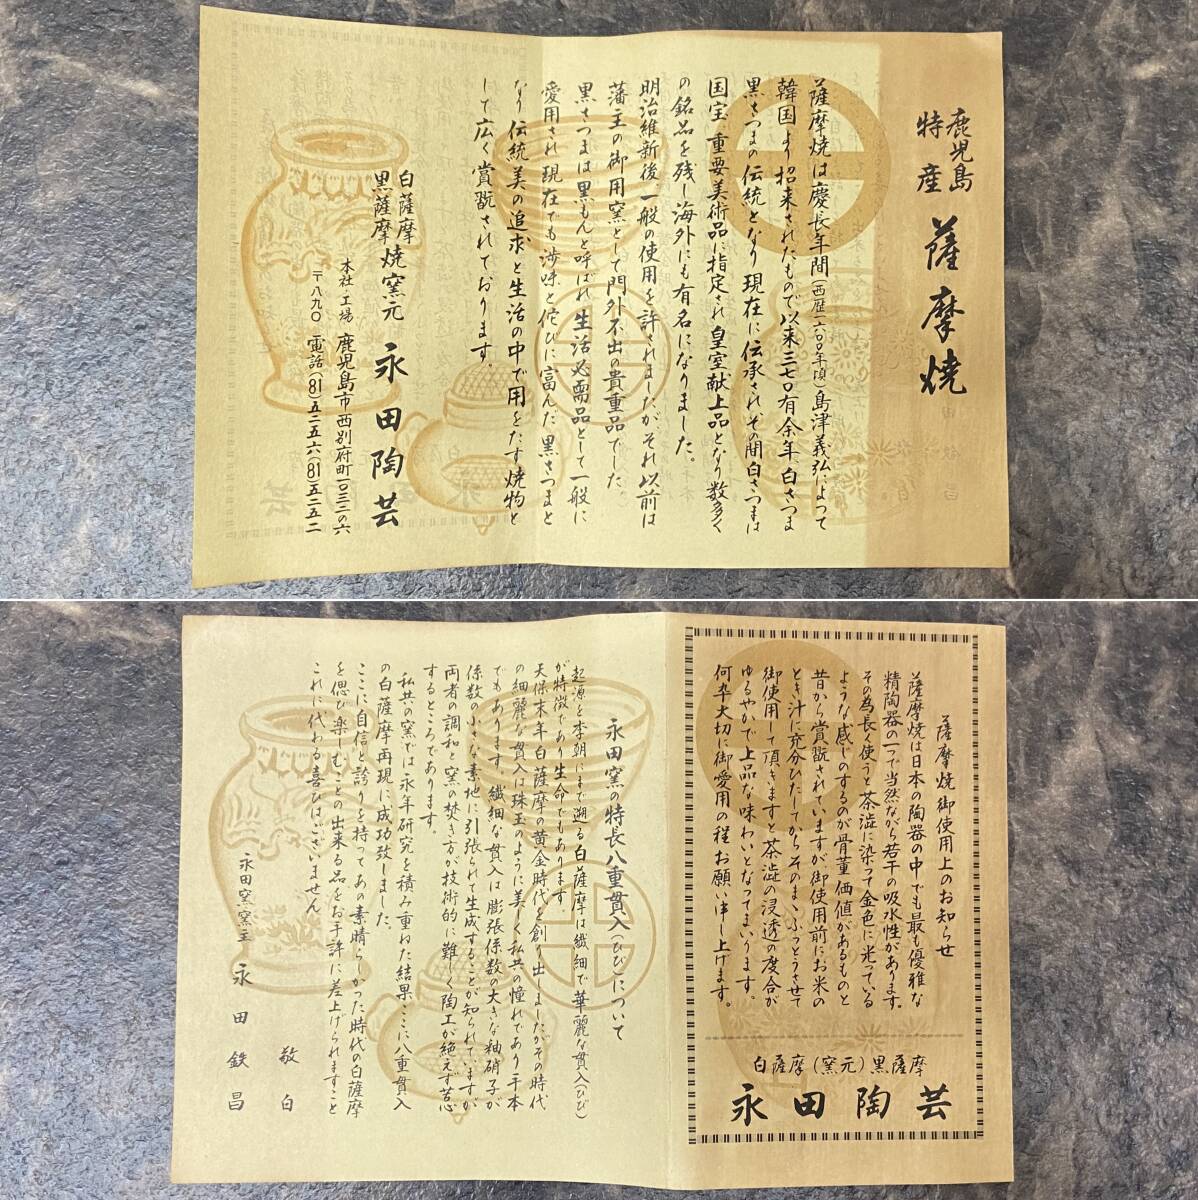 鹿児島
特産
薩摩焼
薩摩焼は慶長年間(西歴一六〇〇年頃)島津義弘によって
韓国より招来されたもので以来三七〇有余年白さつま
黒さつまの伝統となり現在に伝承され、その間白さつまは
国宝、重要美術品に指定され皇室献上品となり数多く
の銘品を残し海外にも有名になりました。
明治維新後、一般の使用を許されましたが、それ以前は
藩主の御用窯として門外不出の貴重品でした。
黒さつまは黒もんと呼ばれ生活必需品として一般に
愛用され現在でも渋味と侘びに富んだ黒さつまと
なり伝統美の追求と生活の中で用をたす焼物と
して広く賞翫されております。
白薩摩
黒薩摩
焼窯元 永田陶芸
本社・工場 鹿児島市西別府町一〇三一の六
〒八九〇 電話(81)五二五六(81)五二五二
薩摩焼御使用上のお知らせ
薩摩焼は日本の陶器の中でも最も優雅な
精陶器の一つで当然ながら若干の吸水性があります。
その為長く使うと茶澁に染って金色に光っている
ような感じのするのが骨董価値があるものと
昔から賞翫されていますが御使用前にお米の
とぎ汁に充分ひたしてからそのまゝふっとうさせて
御使用して頂きますと茶澁の浸透の度合が
ゆるやかで上品な味わいとなってまいります。
何卆大切に御愛用の程お願い申し上げます。
白薩摩(窯元)黒薩摩
永田陶芸
永田窯の特長八重貫入(ひび)について
起源を李朝にまで遡る白薩摩は繊細で華麗な貫入(ひび)
が特徴であり生命でもあります。
天保末年白薩摩の黄金時代を創り出しましたがその時代
の細麗な貫入は珠玉のように美しく私共の憧れであり手本
でもあります。繊細な貫入は膨張係数の大きな釉硝子が
係数の小さな素地に引張られて生成することが知られていますが
両者の調和と窯の焚き方が技術的に難しく陶工が絶えず苦心
するところであります。
私共の窯では永年研究を積み重ねた結果ここに八重貫入
の白薩摩再現に成功致しました。
ここに自信と誇りを持ってあの素晴らしかった時代の白薩摩
を偲び楽しむことの出来る品をお手許に差上げられますこと
これに代わる喜びはございません。
敬白
永田窯窯主 永田鉄昌